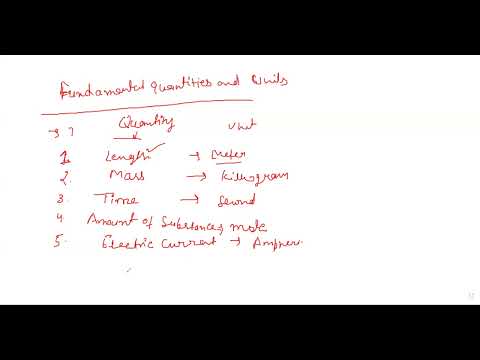 Fundamental Quantities and Units
→ 7 Quantity Unit
1. Length → Meter
2. Mass → Killogram
3. Time → Second
4. Amount of Substances, mole
5. Electric Current → Amper